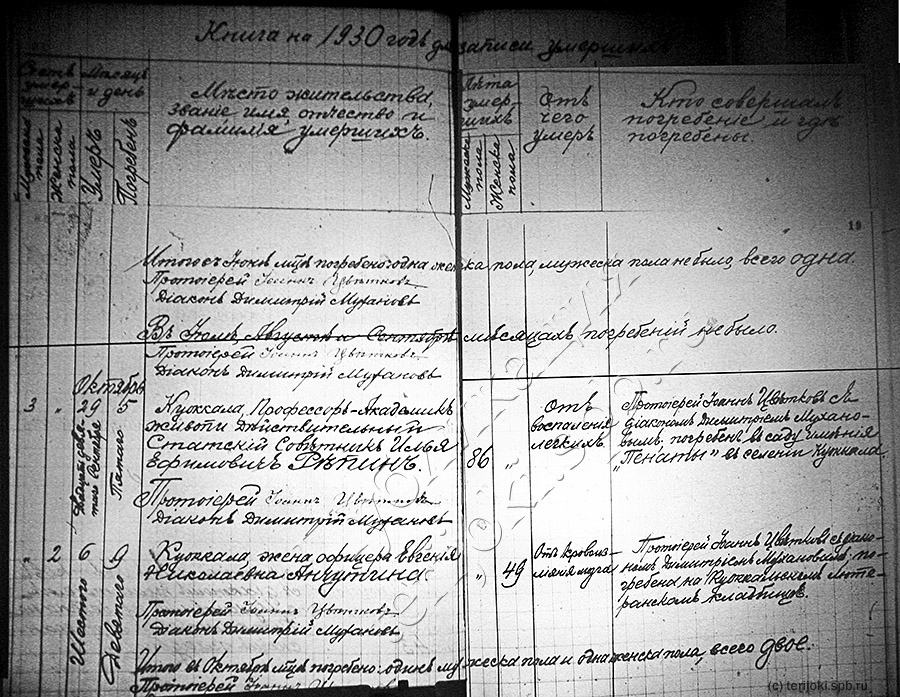 Книга на 1930 годъ для записи умершихъ
Счетъ умер-
шихъ
Мужеска
пола
Женска
пола
Мѣсяцъ
и день
Умеръ
Погребенъ
Мѣсто жительства,
званіе имя, отчество и
фамилія умершихъ.
Лѣта
умер-
шихъ
Мужеска
пола
Женска
пола
Отъ
чего
умеръ
Кто совершалъ
погребеніе и гдѣ
погребены.
19
Итого въ Іюнѣ м-цѣ погребено: одна женска пола мужеска пола не было, всего одна.
Протоіерей Іоаннъ Цвѣтковъ
Діаконъ Димитрій Мухановъ
Въ Іюлѣ, Августѣ и Сентябрѣ мѣсяцахъ погребеній не было.
Протоіерей Іоаннъ Цвѣтковъ
Діаконъ Димитрій Мухановъ
Октября
3 „ 29 5
Двадцать девя-
таго Сентября
Пятаго
Куоккала, Профессоръ-Академикъ
живописи Дѣйствительный
Статскій Совѣтникъ Илья
Ефимовичъ Рѣпинъ.
86 „
Отъ
воспаленія
легкихъ
Протоіерей Іоаннъ Цвѣтковъ съ
діакономъ Димитріемъ Мухано-
вымъ. погребенъ въ саду имѣнія
„Пенаты" въ селеніи Куоккала.
Протоіерей Іоаннъ Цвѣтковъ
Діаконъ Димитрій Мухановъ
„ 2 6 9
Шестого
Девятаго
Куоккала, жена офицера Евгенія
Николаевна Анчутина
„ 49
Отъ кровоиз-
ліянія мозга
Протоіерей Іоаннъ Цвѣтковъ съ діако-
номъ Димитріемъ Мухановымъ. по-
гребена на Куоккальскомъ Люте-
ранскомъ кладбищѣ.
Протоіерей Іоаннъ Цвѣтковъ
Діаконъ Димитрій Мухановъ
Итого въ Октябрѣ м-цѣ погребено: одинъ мужеска пола и одна женска пола, всего двое.
Протоіерей Іоаннъ Цвѣтковъ
(c) terijoki.spb.ru